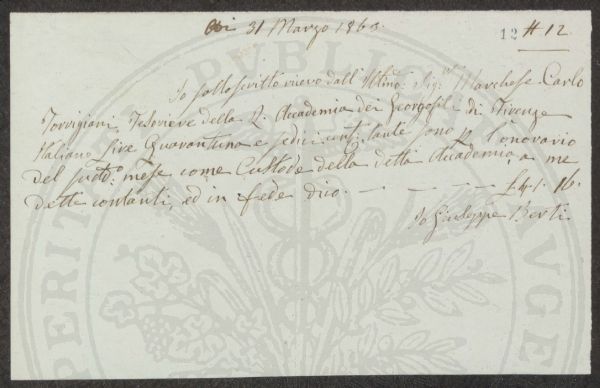 31 Marzo 1863.
12 # 12
Io sottoscritto ricevo dall' Illmo: Sigr. Marchese Carlo
Torrigiani, Tesoriere della R. Accademia dei Georgofili di Firenze
Italiane Lire Quarantuna e sedici cont: tante sono p. l'onorario
del suddo. mese come Custode della detta Accademia, a me
dette contanti, ed in fede dico. — — — — — £ 41. 16.
Io Giuseppe Berti
PERIT
PUBLICA
AUGE